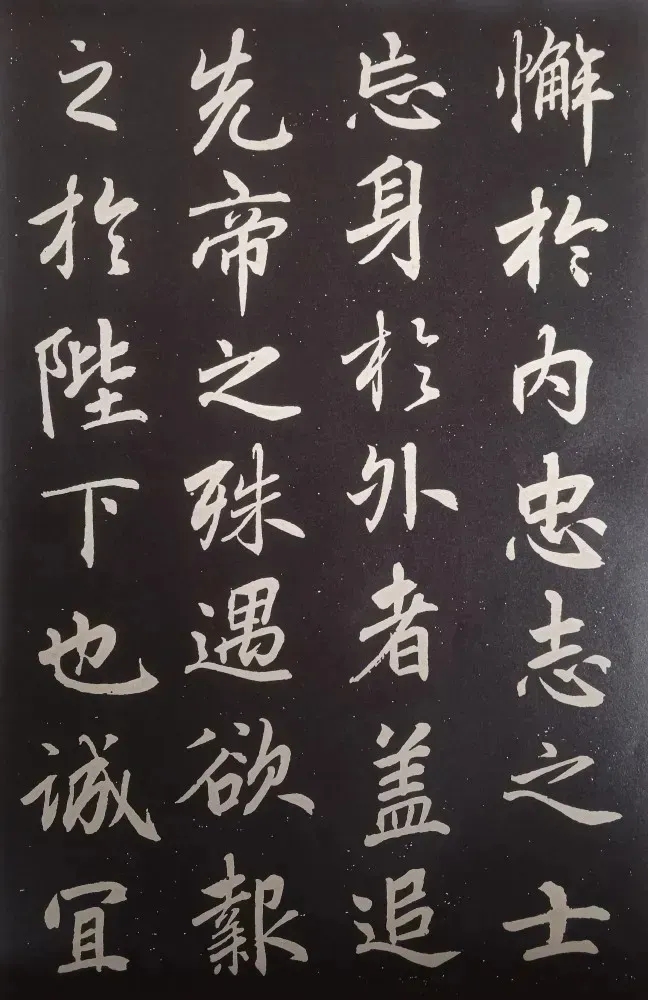 懈於内忠志之士
忘身於外者盖追
先帝之殊遇欲報
之於陛下也誠冝